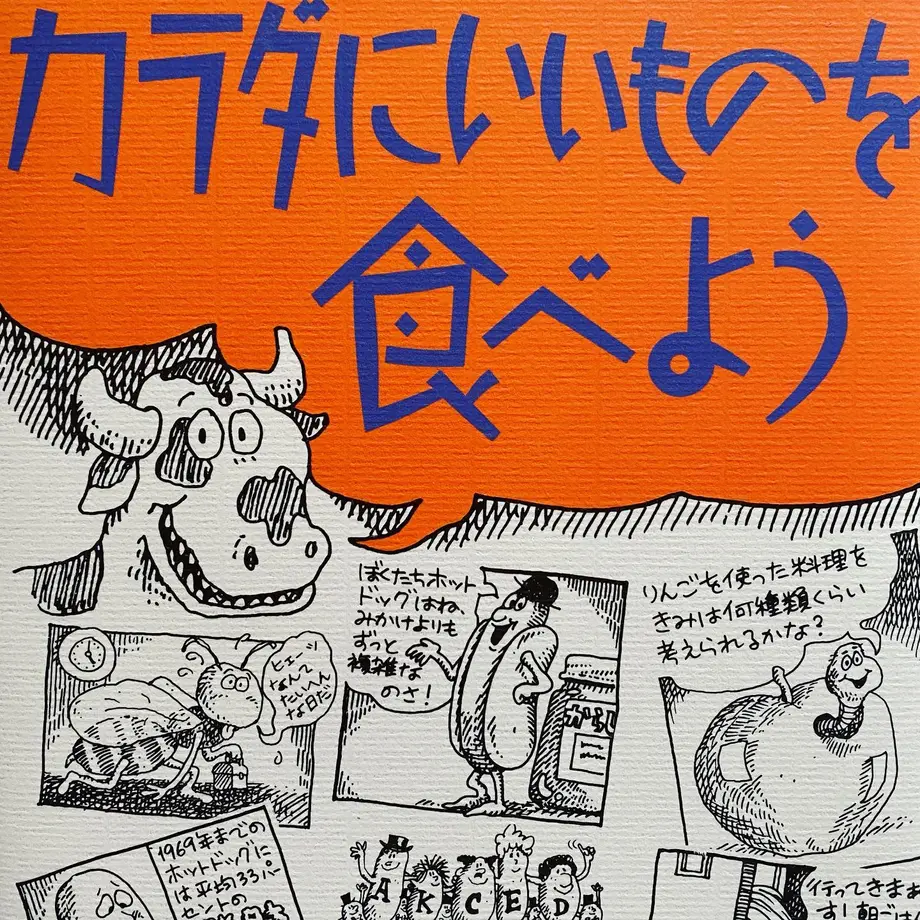 カラダにいいものを
食べよう
ぼくたちホット
ドッグはね、
みかけよりも
ずっと
複雑な
のさ!
りんごを使った料理を
きみは何種類くらい
考えられるかな?
ヒェーッ
なんて
たいへん
な日だ!
からし
1969年までの
ホットドッグに
は平均33パー
セントの
A K C E D
行ってきまあ
す!朝ご